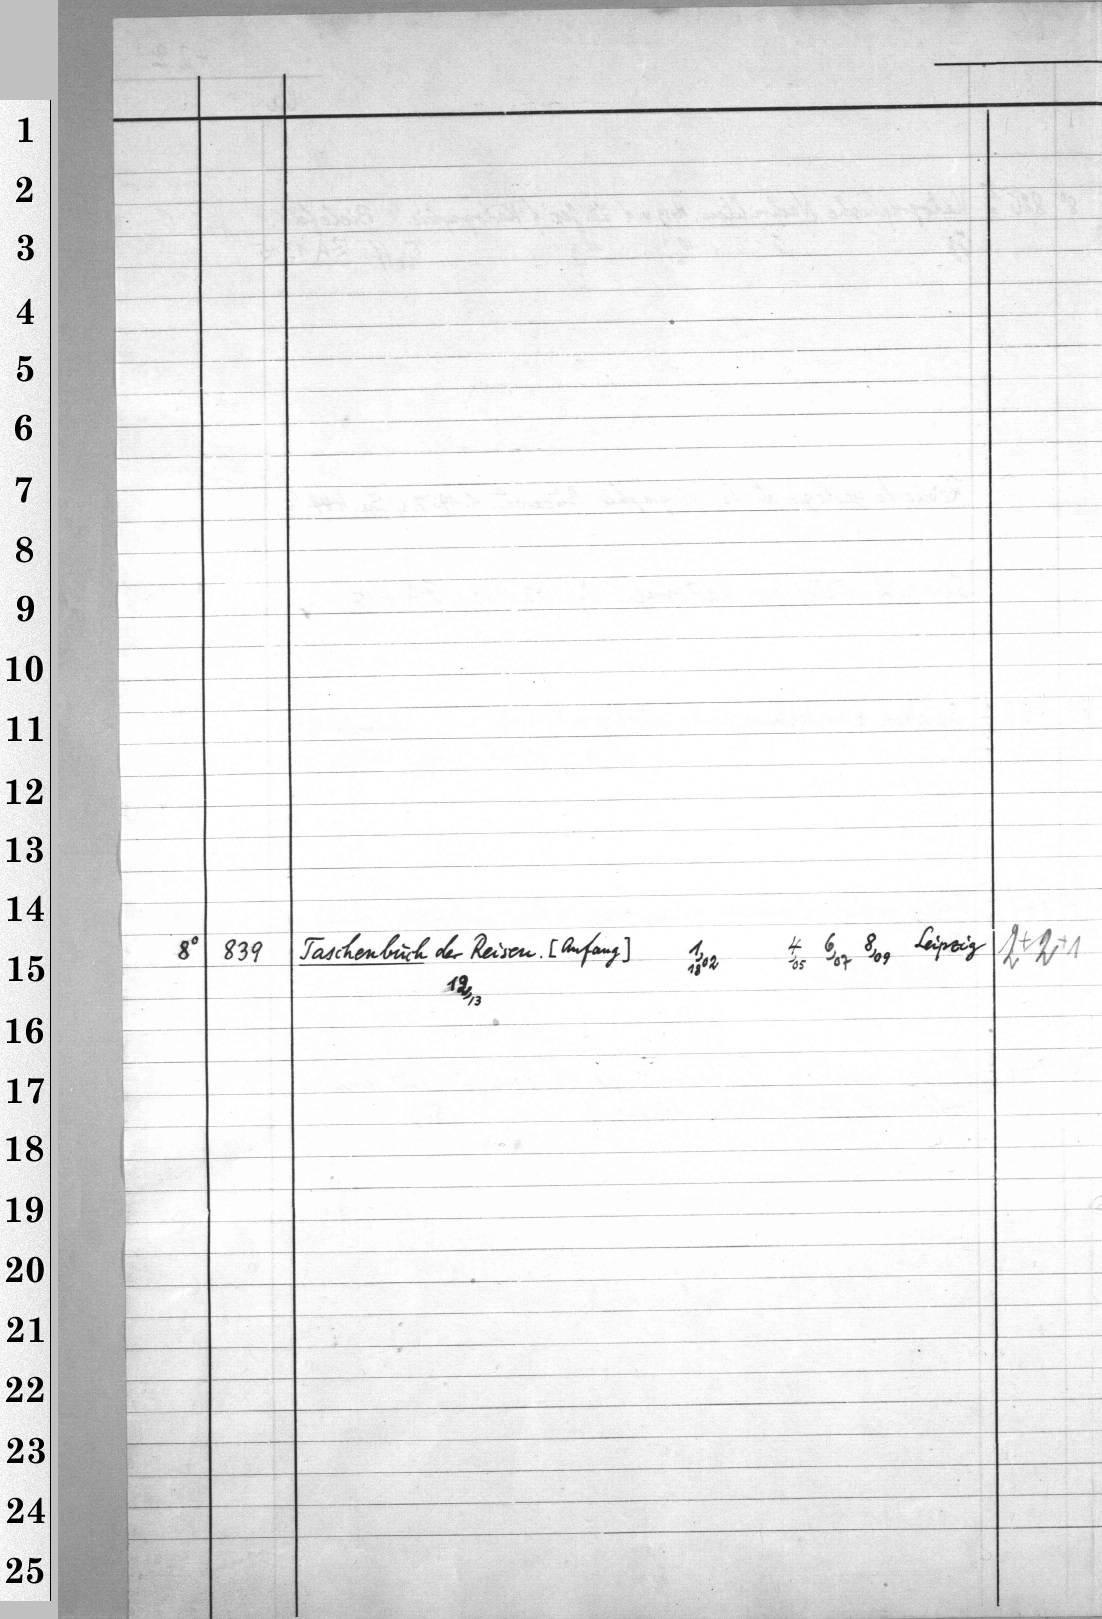 1
2
3
4
5
6
7
8
9
10
11
12
13
14
8° 839 Taschenbuch der Reisen. [Anfang] 1,1802 4,05 6,07 8,09 Leipzig 2+2+1
15
12,13
16
17
18
19
20
21
22
23
24
25